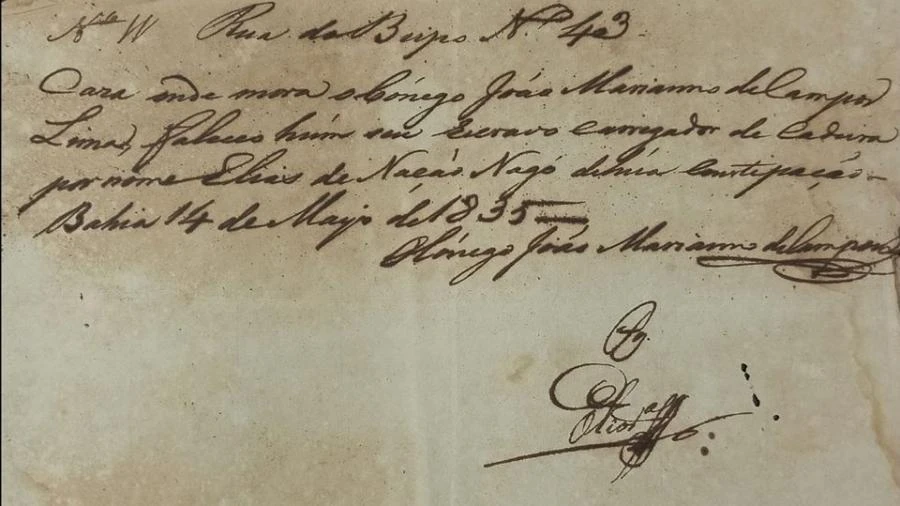 Rua do Bispo Nº 43
Caza onde mora o Cónego João Marianno de Campos
Lima, faleceo húm seu escravo carregador de Cadeira
por nome Elias de Nação Nagó de húa Constipação
Bahia 14 de Mayo de 1835
O Cónego João Marianno de Campos